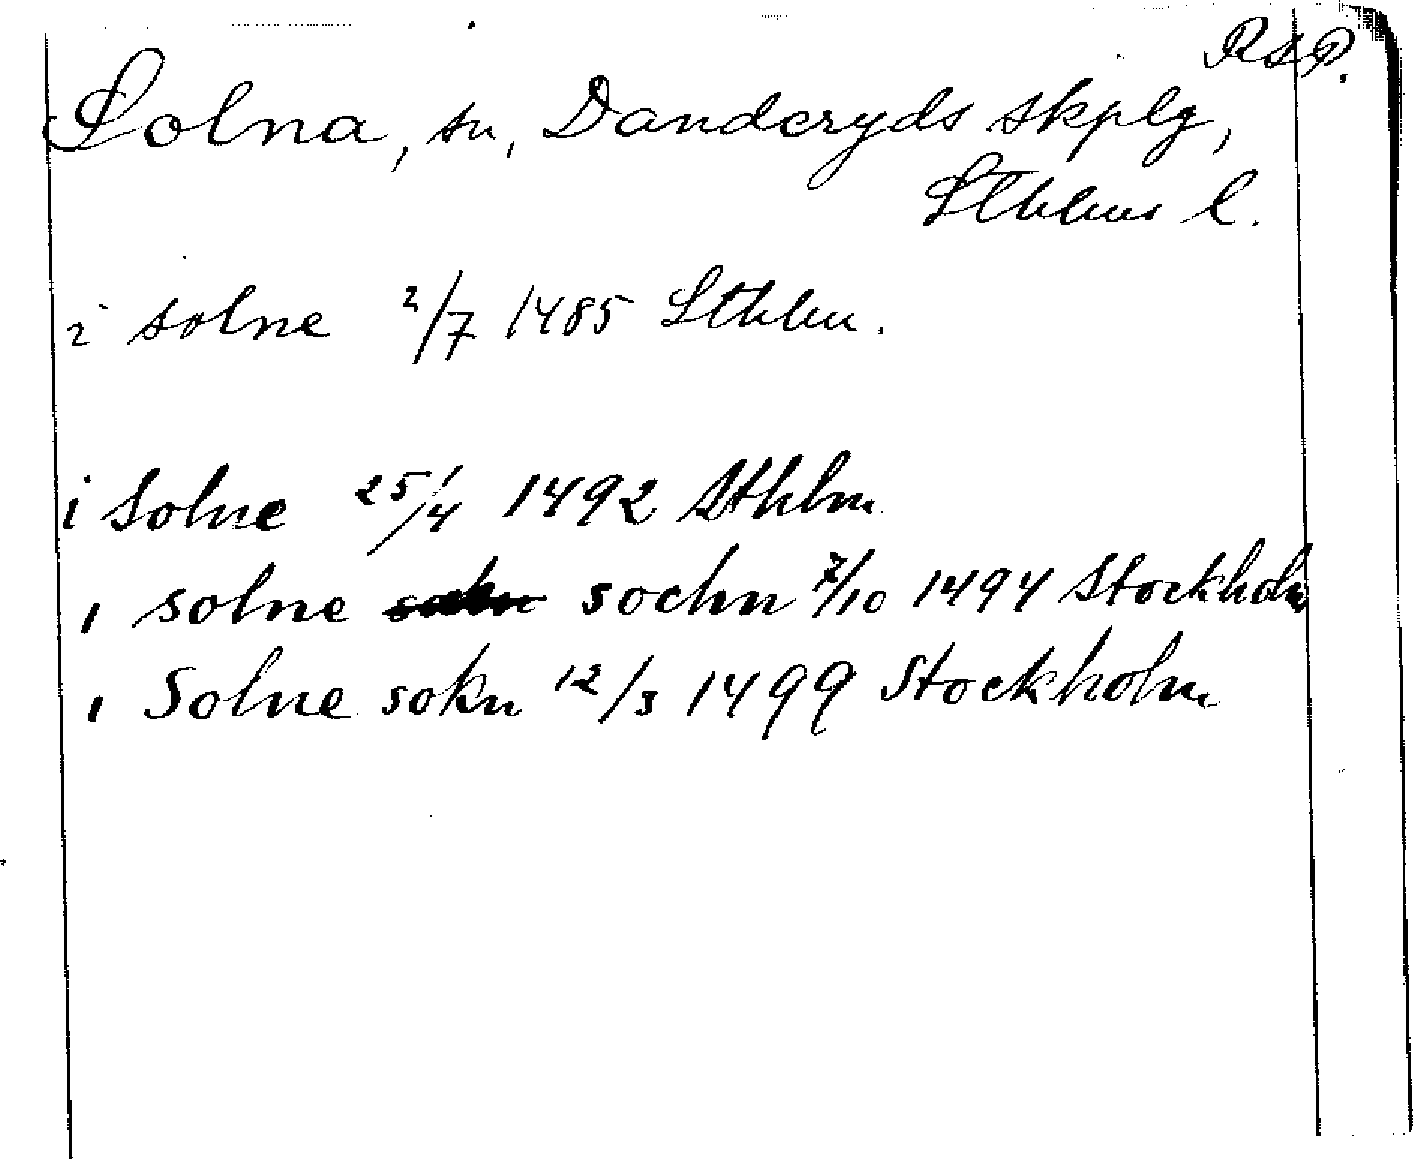 RAP.
Solna, sn, Danderyds skplg,
Sthlms l.
i solne 2/7 1485 Sthlm.
i Solne 25/4 1492 Sthlm
i solne sochn 7/10 1494 Stockholm
i Solne sokn 12/3 1499 Stockholm